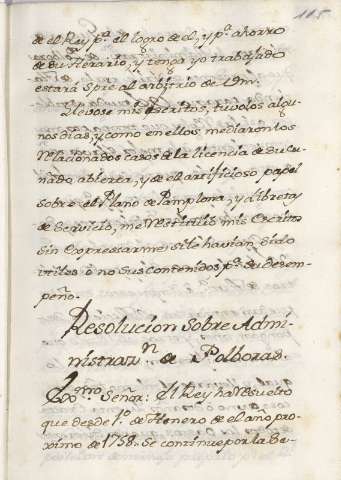 115
de el Rey p.ª el logro de el, y p.ª ahorro
de su Herario, y tengo yo trabajado
estará Spre al arbitrio de Vm.
Llevose mis escritos, tuvolos algu-
nos dias, y como en ellos mediaron los
relacionados casos de la licencia de su cu-
ñado abierta, y de el artificioso papel
sobre el Plano de Pamplona, y libreta
de servicio, me restituió mis Escritos
sin expresarme si le havian sido
utiles ò no sus contenidos p.ª su desem-
peño.
Resolucion sobre Admi-
nistraz.n de Polboras.
Exmo. Señor: El Rey ha resuelto
que desde 1.º de Henero de el año pro-
ximo de 1758. se continue por la Re-